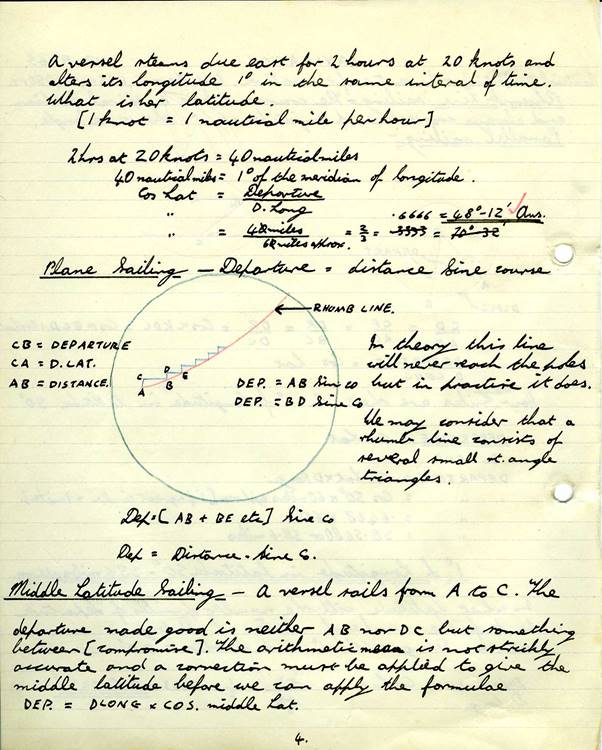 A vessel steams due east for 2 hours at 20 knots and
alters its longitude 1° in the same interval of time.
What is her latitude.
[1 knot = 1 nautical mile per hour]
2 hrs at 20 knots = 40 nautical miles
40 nautical miles = 1° of the meridian of longitude.
Cos Lat = Departure
D. Long
.6666 = 48°-12' Ans.
" = 40 miles = 2/3 = .3333 = 70° 32'
60 miles approx.
Plane Sailing — Departure = distance Sine course
RHUMB LINE.
CB = DEPARTURE
CA = D. LAT.
AB = DISTANCE.
C D E
A B
DEP. = AB Sin co
DEP. = BD Sine Co
In theory this line
will never reach the poles
but in practice it does.
We may consider that a
rhumb line consists of
several small rt. angle
triangles.
Dep = [AB + BE etc] Sine Co
Dep = Distance . Sine C.
Middle Latitude Sailing — A vessel sails from A to C. The
departure made good is neither AB nor DC but something
between [compromise]. The arithmetic mean is not strickly
accurate and a correction must be applied to give the
middle latitude before we can apply the formulae
DEP. = DLONG x COS. middle Lat.
4.